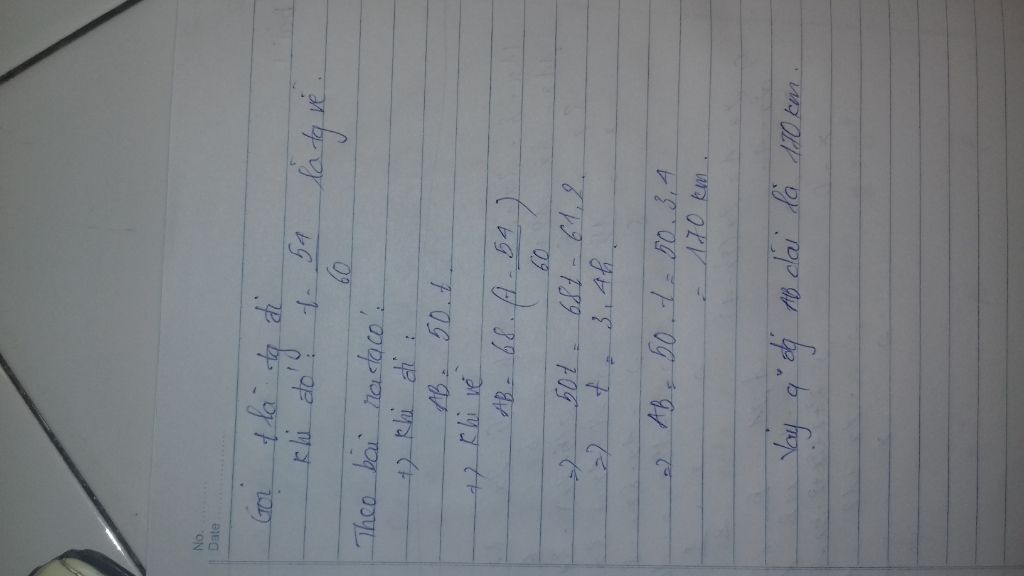 No. ..........
Date ..........
Gọi t là tg đi
khi đó: t - 54/60 là tg về.
Theo bài ra ta có:
+) khi đi:
AB = 50.t
+) khi về
AB = 68.(t - 54/60)
=) 50t = 68t - 61,2.
=) t = 3,4h.
=) AB = 50.t = 50.3,4
= 170 km.
Vậy qđg AB dài là 170 km.